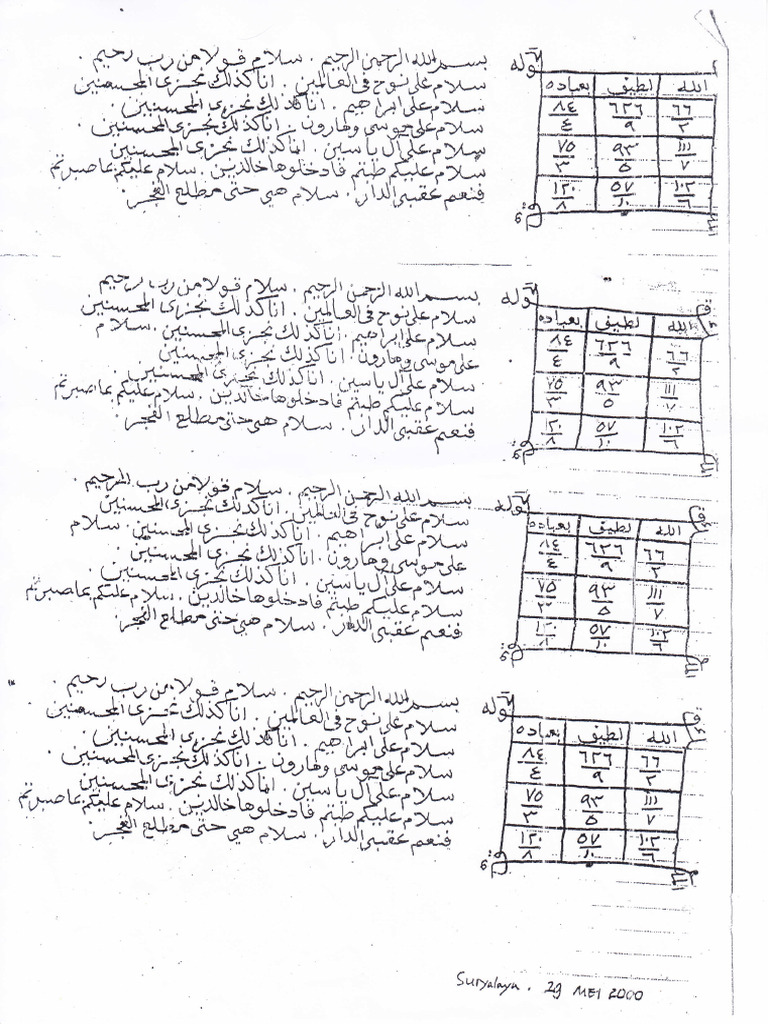 بسم الله الرحمن الرحيم . سلام قولا من رب رحيم .
سلام على نوح فى العالمين . انا كذلك نجزى المحسنين
سلام على ابراهيم . انا كذلك نجزى المحسنين .
سلام على موسى وهارون . انا كذلك نجزى المحسنين .
سلام على ال ياسين . انا كذلك نجزى المحسنين
سلام عليكم طبتم فادخلوها خالدين . سلام عليكم بما صبرتم
فنعم عقبى الدار . سلام هي حتى مطلع الفجر .
قوله
الله لطيف بعباده
٦٦ ٦٢٦ ٨٤
٢ ٩ ٤
١١١ ٩٣ ٧٥
٧ ٥ ٣
١٠٢ ٥٧ ١٢٠
٦ ١٠ ٨
بسم الله الرحمن الرحيم . سلام قولا من رب رحيم
سلام على نوح فى العالمين . انا كذلك نجزى المحسنين
سلام على ابراهيم . انا كذلك نجزى المحسنين . سلام
على موسى وهارون . انا كذلك نجزى المحسنين
سلام على ال ياسين . انا كذلك نجزى المحسنين .
سلام عليكم طبتم فادخلوها خالدين . سلام عليكم بما صبرتم
فنعم عقبى الدار . سلام هي حتى مطلع الفجر .
قوله
الله لطيف بعباده
٦٦ ٦٢٦ ٨٤
٢ ٩ ٤
١١١ ٩٣ ٧٥
٧ ٥ ٣
١٠٢ ٥٧ ١٢٠
٦ ١٠ ٨
بسم الله الرحمن الرحيم . سلام قولا من رب الرحيم .
سلام على نوح فى العالمين . انا كذلك نجزى المحسنين
سلام على ابراهيم . انا كذلك نجزى المحسنين . سلام
على موسى وهارون . انا كذلك نجزى المحسنين .
سلام على ال ياسين . انا كذلك نجزى المحسنين .
سلام عليكم طبتم فادخلوها خالدين . سلام عليكم بما صبرتم
فنعم عقبى الدار . سلام هي حتى مطلع الفجر .
قوله
الله لطيف بعباده
٦٦ ٦٢٦ ٨٤
٢ ٩ ٤
١١١ ٩٣ ٧٥
٧ ٥ ٣
١٠٢ ٥٧ ١٢٠
٦ ١٠ ٨
بسم الله الرحمن الرحيم . سلام قولا من رب رحيم .
سلام على نوح فى العالمين . انا كذلك نجزى المحسنين
سلام على ابراهيم . انا كذلك نجزى المحسنين .
سلام على موسى وهارون . انا كذلك نجزى المحسنين .
سلام على ال ياسين . انا كذلك نجزى المحسنين
سلام عليكم طبتم فادخلوها خالدين . سلام عليكم بما صبرتم
فنعم عقبى الدار . سلام هي حتى مطلع الفجر .
قوله
الله لطيف بعباده
٦٦ ٦٢٦ ٨٤
٢ ٩ ٤
١١١ ٩٣ ٧٥
٧ ٥ ٣
١٠٢ ٥٧ ١٢٠
٦ ١٠ ٨
Suryalaya . 29 MEI 2000